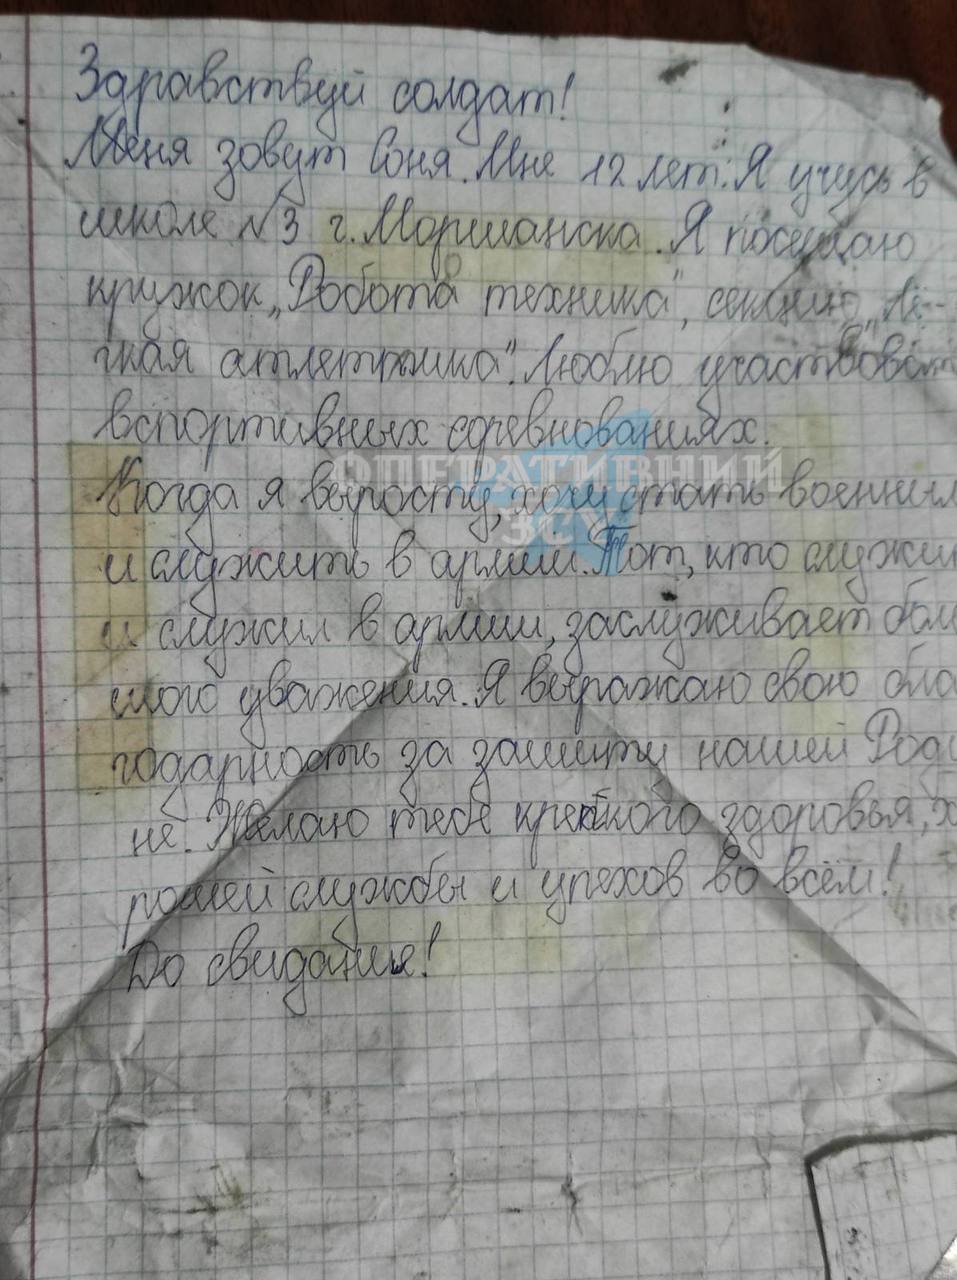 Здравствуй солдат!
Меня зовут Соня. Мне 12 лет. Я учусь в
школе №3 г. Моршанска. Я посещаю
кружок „Робота техника", секцию „Лё-
гкая атлетика". Люблю участвоват
в спортивных соревнованиях.
ОПЕРАТИВНИЙ
ЗСУ
Когда я вырасту, хочу стать военным
и служить в армии. Тот, кто служи
и служил в армии, заслуживает бол
шого уважения. Я выражаю свою бла
годарность за защиту нашей Роди
не. Желаю тебе крепкого здоровья, х
рошей службы и упехов во всём!
До свидания!